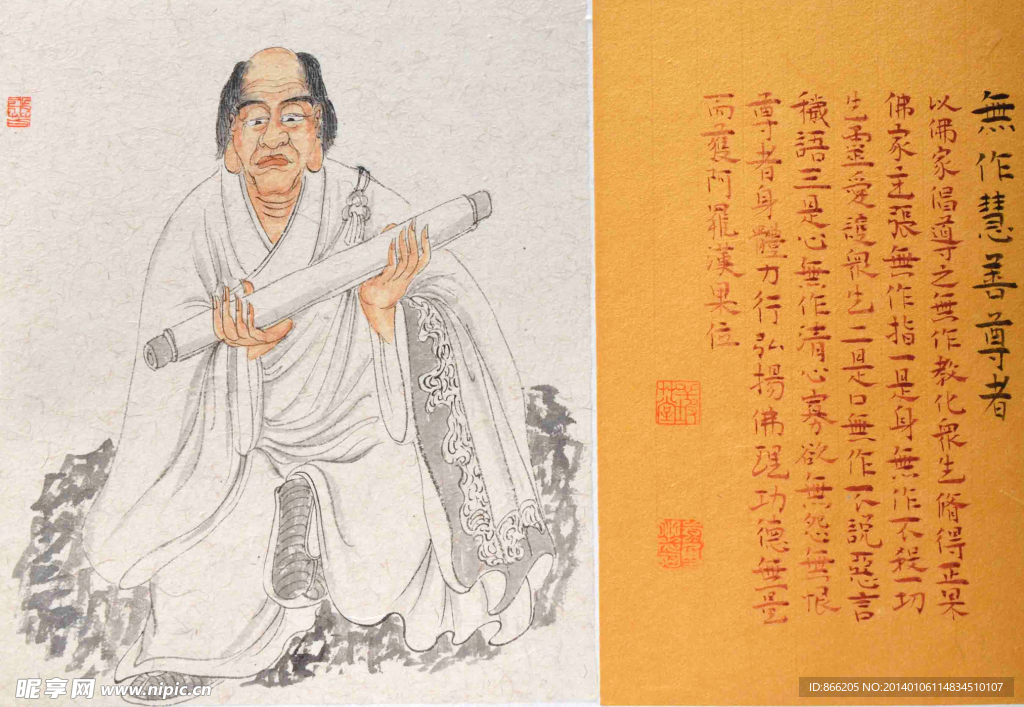 無作慧善尊者
以佛家倡導之無作教化衆生脩得正果
佛家主張無作指一是身無作不殺一切
生靈愛護衆生二是口無作不說惡言
穢語三是心無作清心寡欲無怨無恨
尊者身體力行弘揚佛理功德無量
而獲阿羅漢果位
昵享网 www.nipic.cn
ID:866205 NO:20140106114834510107